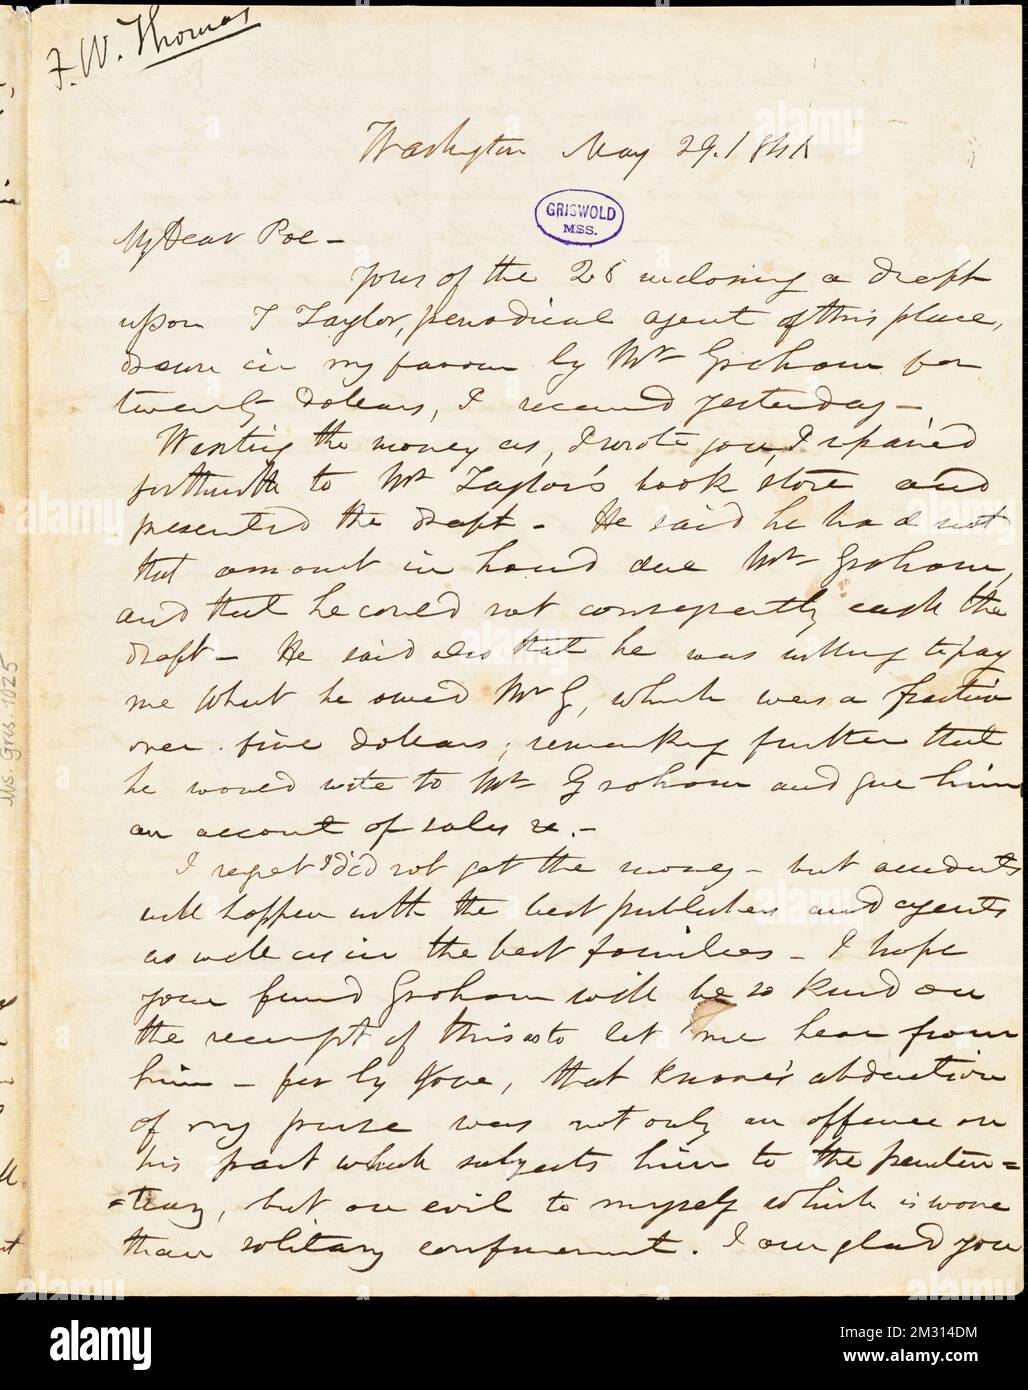 F. W. Thomas
Washington May 29. 1841
GRISWOLD
MSS.
My Dear Poe –
Yours of the 28 inclosing a draft
upon T Taylor, periodical agent of this place,
drawn in my favour by Mr Graham for
twenty dollars, I received yesterday –
Wanting the money as, I wrote you, I repaired
forthwith to Mr Taylor's book store and
presented the draft – He said he had not
that amount in hand due Mr Graham,
and that he could not consequently cash the
draft – He said also that he was willing to pay
me what he owed Mr G, which was a fraction
over five dollars; remarking further that
he would write to Mr Graham and give him
an account of sales &c. –
I regret I did not get the money – but accidents
will happen with the best publishers and agents
as well as in the best families – I hope
your friend Graham will be so kind on
the receipt of this as to let me hear from
him – for by Jove, that knave's abduction
of my purse was not only an offence on
his part which subjects him to the peniten=
=tiary, but an evil to myself which is worse
than solitary confinement. I am glad you
Ms. Gris 1025
alamy
Image ID: 2M314DM
www.alamy.com